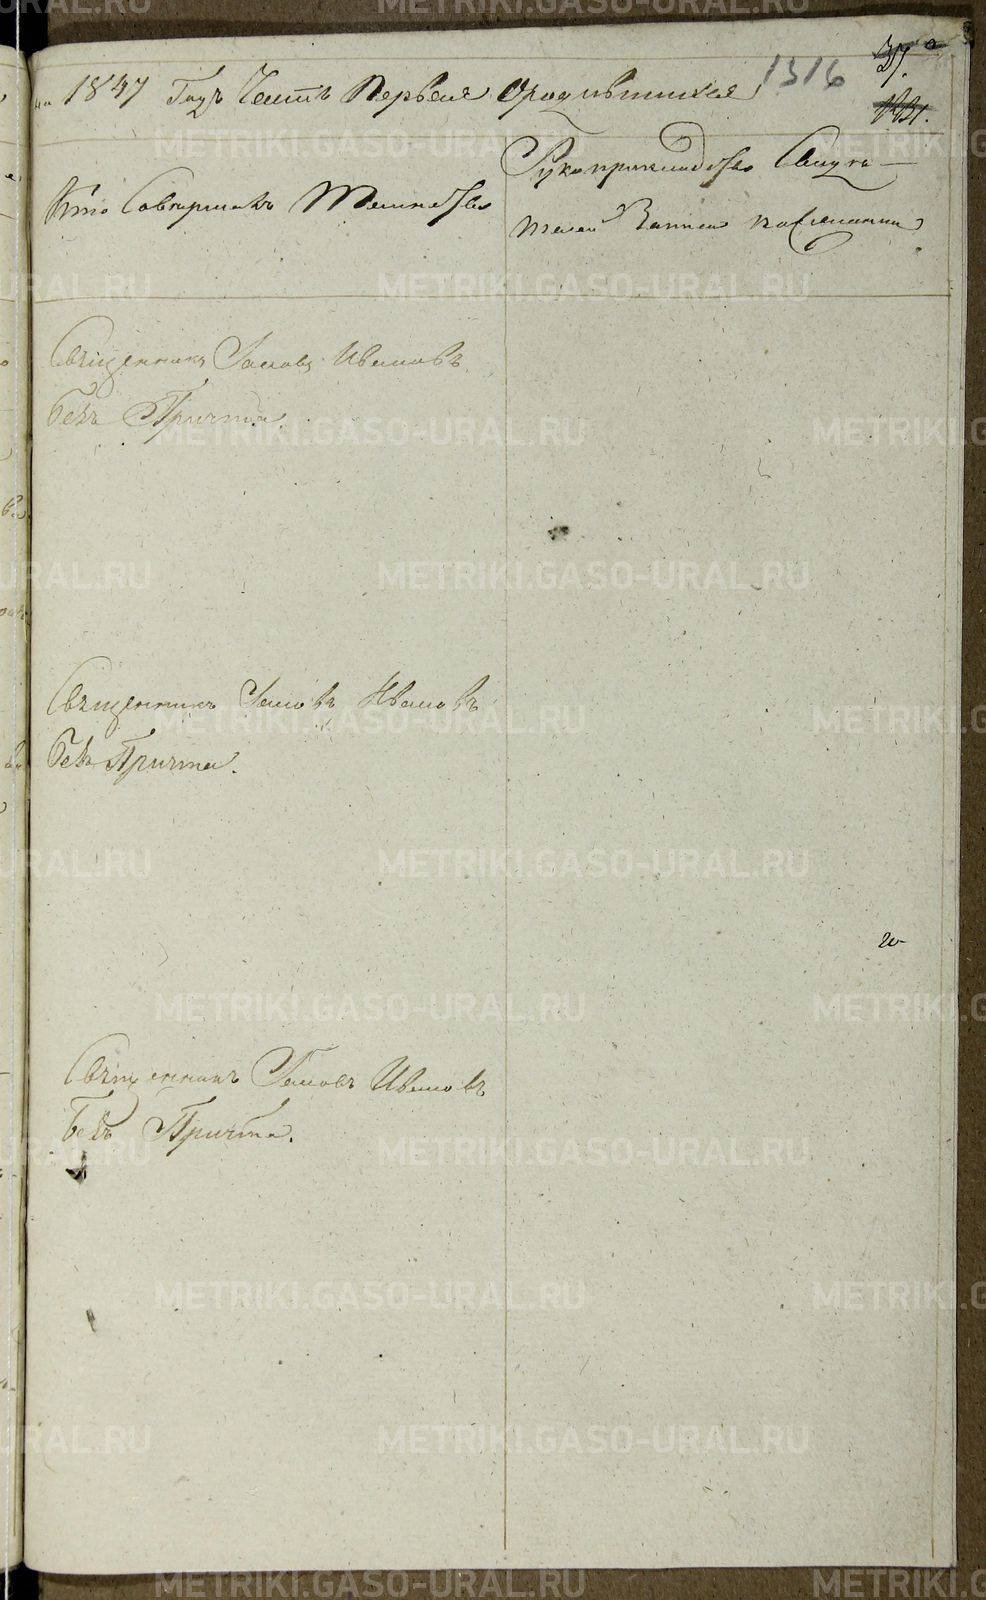 на 1847 Годъ Часть Первая о родившихся
1316
37.
Кто Совершалъ Таинство
Рукоприкладство Свидѣ-
телей Записи по желанию
Священникъ Iаковъ Ивановъ
безъ Причта.
Священникъ Iаковъ Ивановъ
безъ Причта.
Священникъ Iаковъ Ивановъ
безъ Причта.
METRIKI.GASO-URAL.RU